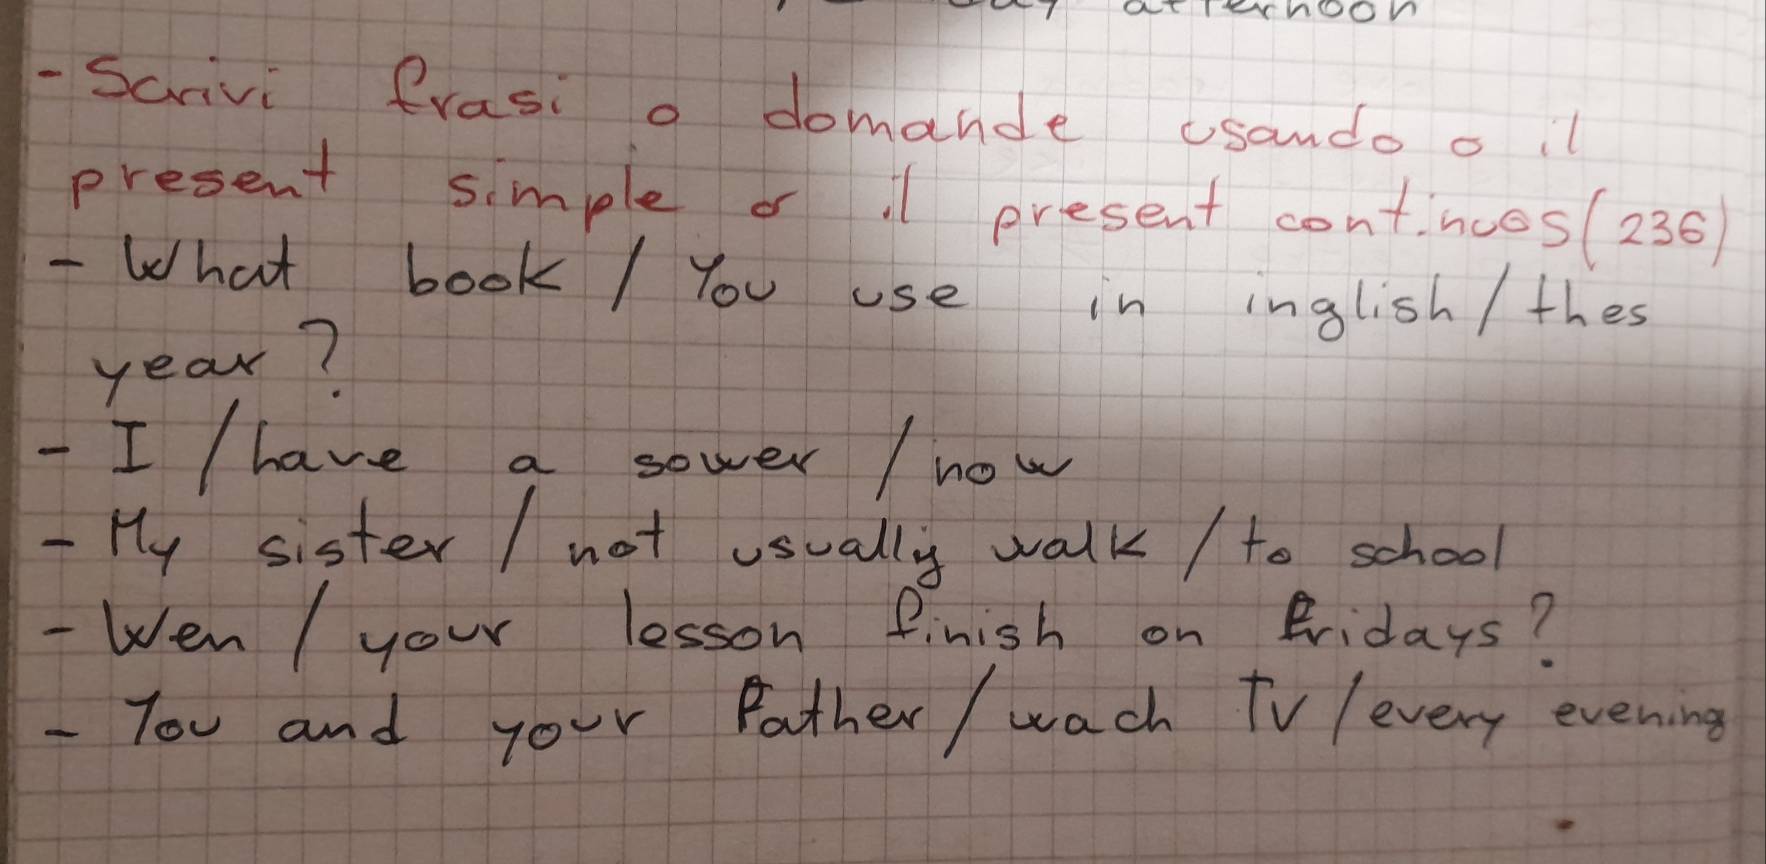 afternoon
- Scrivi frasi o domande usando o il
present simple o il present continuos (236)
- What book / You use in inglish / thes
year?
- I / have a sower / now
- My sister / not usually walk / to school
- Wen / your lesson finish on Fridays?
- You and your Father / wach TV / every evening